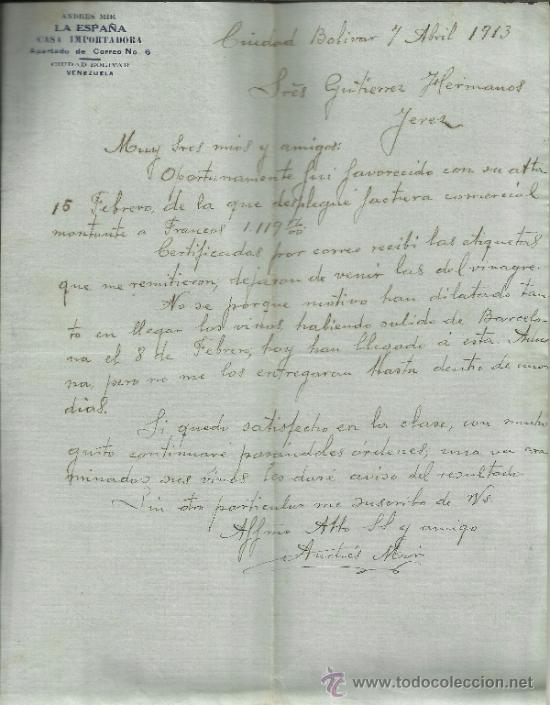 ANDRES MIR
LA ESPAÑA
CASA IMPORTADORA
Apartado de Correo No. 6
CIUDAD BOLIVAR
VENEZUELA
Ciudad Bolivar 7 Abril 1913
Sres Gutierrez Hermanos
Jerez
Muy Sres mios y amigos:
Oportunamente fui favorecido con su atta
15 Febrero, de la que desplegué factura comercial
montante a Francos 1.119
Certificadas por correo recibi las etiquetas
que me remitieron, dejaron de venir las del vinagre.
No se porque motivo han dilatado tan-
to en llegar los vinos, habiendo salido de Barcelo-
na el 8 de Febrero, hoy han llegado á esta Adua-
na, pero no me los entregaran hasta dentro de unos
dias.
Si quedo satisfecho en la clase, con mucho
gusto continuaré pasandoles órdenes, una vez exa-
minados sus vinos les daré aviso del resultado
Sin otro particular me suscribo de Vs.
Affmo Atto SS y amigo
Andrés Mir
www.todocoleccion.net